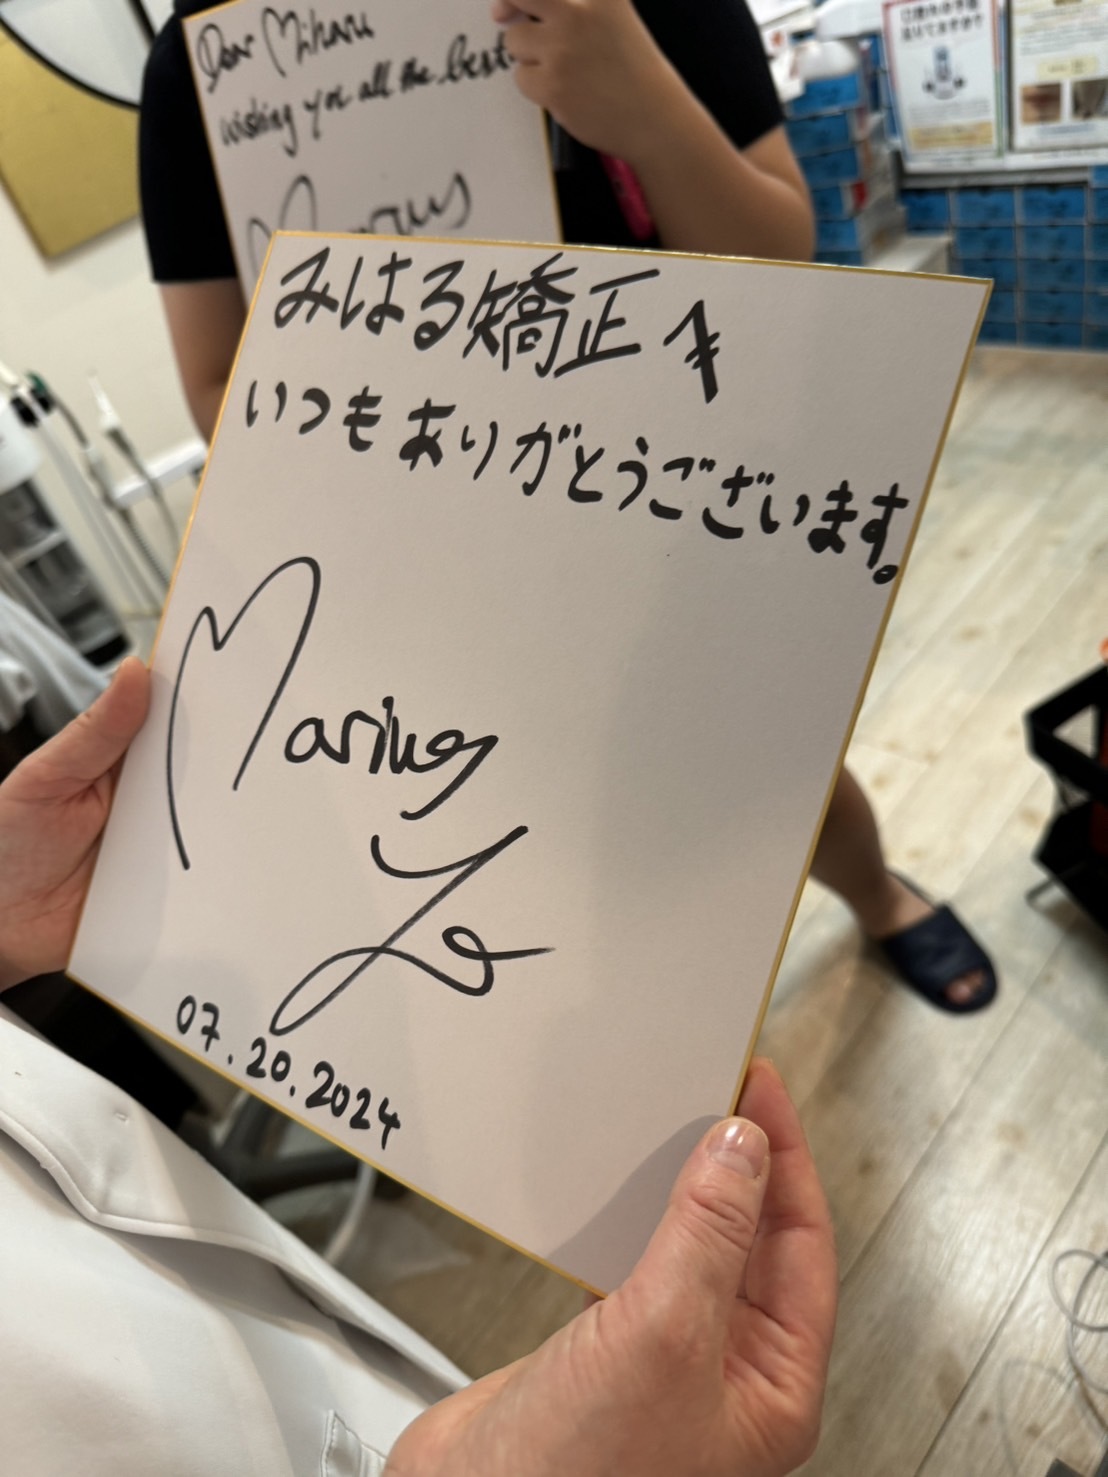 Dear Miharu
wishing you all the best.
Marius
みはる矯正へ
いつもありがとうございます。
Marius
Yo
07.20.2024